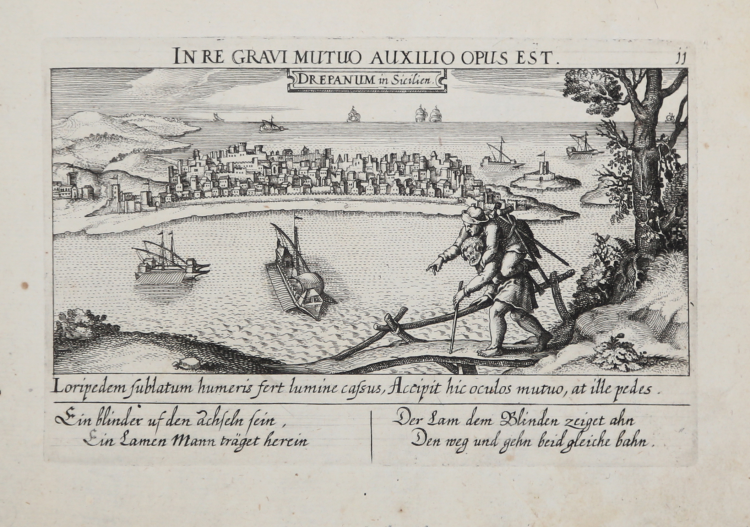 IN RE GRAVI MUTUO AUXILIO OPUS EST.
11
DREPANUM in Sicilien.
Loripedem sublatum humeris fert lumine cassus, Accipit hic oculos mutuo, at ille pedes.
Ein blinder uf den achseln sein,
Ein Lamen Mann träget herein
Der Lam dem Blinden zeiget ahn
Den weg und gehn beid gleiche bahn.